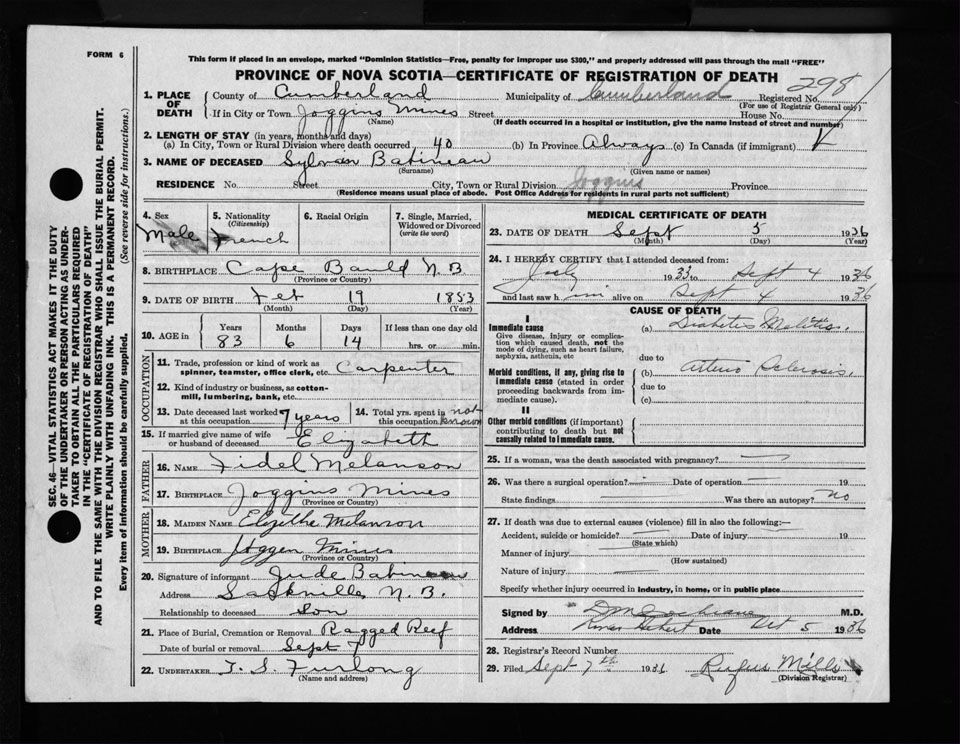 FORM 6
This form if placed in an envelope, marked "Dominion Statistics—Free, penalty for improper use $300," and properly addressed will pass through the mail "FREE"
PROVINCE OF NOVA SCOTIA—CERTIFICATE OF REGISTRATION OF DEATH
SEC. 46—VITAL STATISTICS ACT MAKES IT THE DUTY
OF THE UNDERTAKER OR PERSON ACTING AS UNDER-
TAKER TO OBTAIN ALL THE PARTICULARS REQUIRED
IN THE "CERTIFICATE OF REGISTRATION OF DEATH"
AND TO FILE THE SAME WITH THE DIVISION REGISTRAR WHO SHALL ISSUE THE BURIAL PERMIT.
WRITE PLAINLY WITH UNFADING INK. THIS IS A PERMANENT RECORD.
Every item of information should be carefully supplied. (See reverse side for instructions.)
1. PLACE OF DEATH County of Cumberland Municipality of Cumberland Registered No. 298
(For use of Registrar General only)
If in City or Town Joggins Mines Street House No.
(Name) (If death occurred in a hospital or institution, give the name instead of street and number)
2. LENGTH OF STAY (in years, months and days)
(a) In City, Town or Rural Division where death occurred 40 (b) In Province Always (c) In Canada (if immigrant)
3. NAME OF DECEASED Sylvan Babineau
(Surname) (Given name or names)
RESIDENCE No. Street City, Town or Rural Division Joggins Province
(Residence means usual place of abode. Post Office Address for residents in rural parts not sufficient)
4. Sex Male
5. Nationality (Citizenship) French
6. Racial Origin
7. Single, Married, Widowed or Divorced (write the word)
8. BIRTHPLACE Cape Bauld N.B.
(Province or Country)
9. DATE OF BIRTH Feb 19 1853
(Month) (Day) (Year)
10. AGE in Years 83 Months 6 Days 14 If less than one day old hrs. or min.
OCCUPATION
11. Trade, profession or kind of work as spinner, teamster, office clerk, etc. Carpenter
12. Kind of industry or business, as cotton-mill, lumbering, bank, etc.
13. Date deceased last worked at this occupation 7 years
14. Total yrs. spent in this occupation not known
15. If married give name of wife or husband of deceased Elizabeth
FATHER
16. NAME Fidel Melanson
17. BIRTHPLACE Joggins Mines
(Province or Country)
MOTHER
18. MAIDEN NAME Melanson
19. BIRTHPLACE Joggen Mines
(Province or Country)
20. Signature of informant Jude Babineau
Address Sackville N.B.
Relationship to deceased son
21. Place of Burial, Cremation or Removal Ragged Reef
Date of burial or removal Sept 7
22. UNDERTAKER T. S. Furlong
(Name and address)
MEDICAL CERTIFICATE OF DEATH
23. DATE OF DEATH Sept 5 1936
(Month) (Day) (Year)
24. I HEREBY CERTIFY that I attended deceased from:
July 1933 to Sept 4 1936
and last saw him alive on Sept 4 1936
CAUSE OF DEATH
I
Immediate cause
Give disease, injury or complication which caused death, not the mode of dying, such as heart failure, asphyxia, asthenia, etc
(a) Diabetis Melitis.
due to
Morbid conditions, if any, giving rise to immediate cause (stated in order proceeding backwards from immediate cause).
(b) Arterio Sclerosis.
due to
(c)
II
Other morbid conditions (if important) contributing to death but not causally related to immediate cause.
25. If a woman, was the death associated with pregnancy?
26. Was there a surgical operation? Date of operation 19
State findings Was there an autopsy? No
27. If death was due to external causes (violence) fill in also the following:—
Accident, suicide or homicide? Date of injury 19
(State which)
Manner of injury
(How sustained)
Nature of injury
Specify whether injury occurred in industry, in home, or in public place
Signed by Cochrane M.D.
Address River Hebert Date Oct 5 1936
28. Registrar's Record Number
29. Filed Sept 7th 1936 Rufus Mills
(Division Registrar)